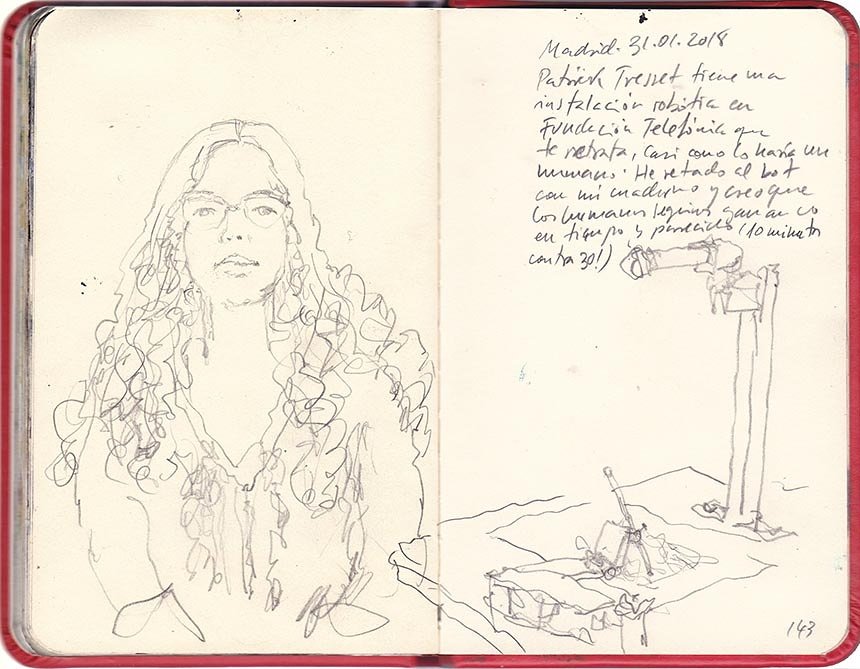 Madrid. 31.01.2018
Patrick Tresset tiene una
instalación robótica en
Fundación Telefónica que
te retrata, casi como lo haría un
humano. He retado al bot
con mi cuaderno y creo que
los humanos seguimos ganando
en tiempo y parecido (10 minutos
contra 30!)
143